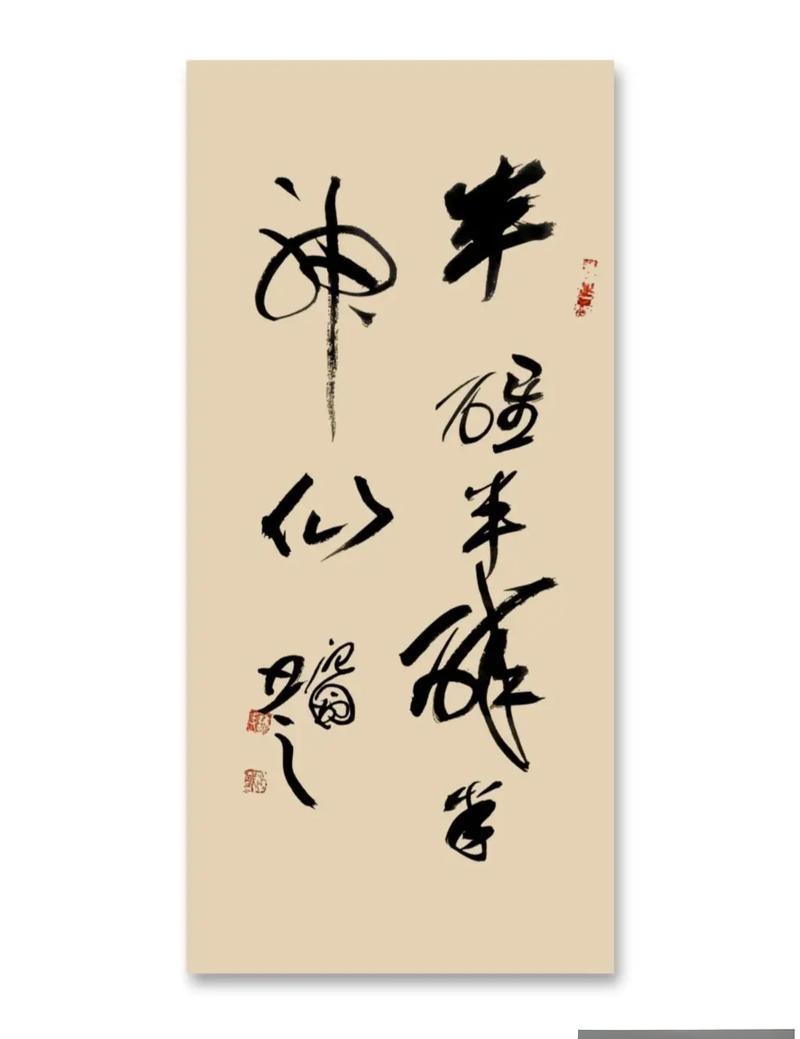 半醒半醉半
神仙